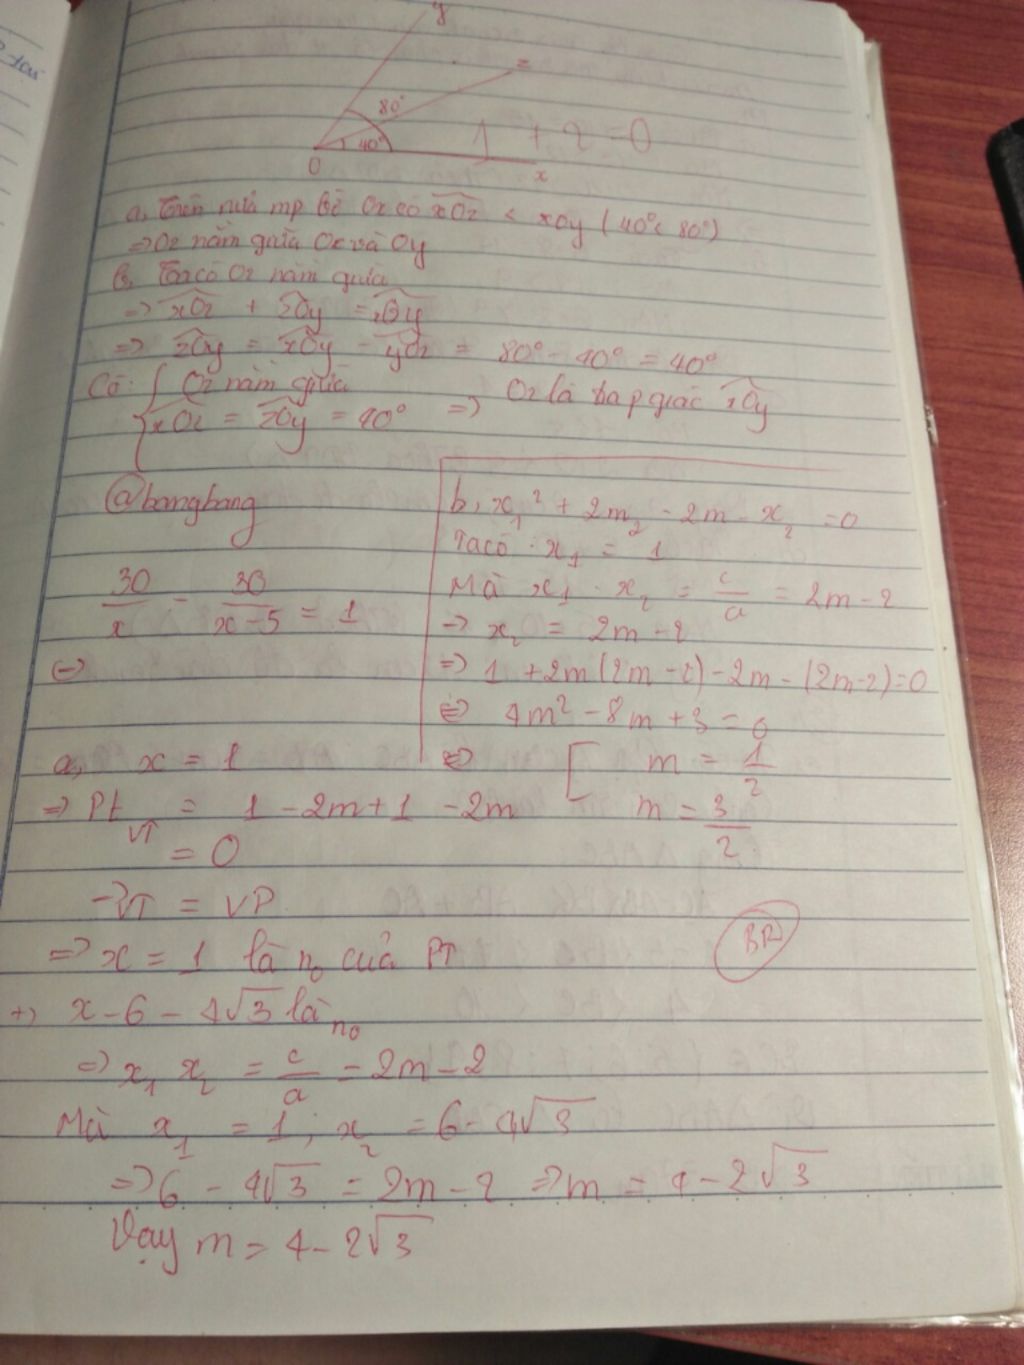 y
z
80°
40°
O
x
1 + 2 = 0
a, Trên nửa mp bờ Ox có xOz < xOy (40° < 80°)
=> Oz nằm giữa Ox và Oy
b, Ta có Oz nằm giữa
=> xOz + zOy = xOy
=> zOy = xOy - yOz = 80° - 40° = 40°
Có { Oz nằm giữa
xOz = zOy = 40° => Oz là tia p giác xOy
@bangbang
30/x - 30/(x-5) = 1
(-)
b, x₁² + 2m₂ - 2m - x₂ = 0
Ta có: x₁ = 1
Mà x₁ . x₂ = c/a = 2m - 2
=> x₂ = 2m - 2
=> 1 + 2m(2m - 2) - 2m - (2m-2) = 0
<=> 4m² - 8m + 3 = 0
<=> [ m = 1/2
m = 3/2
a, x = 1
=> Pt VT = 1 - 2m + 1 - 2m
= 0
-> VT = VP
=> x = 1 là n₀ của PT
BR
+, x - 6 - 4√3 là n₀
=> x₁ x₂ = c/a = 2m - 2
Mà x₁ = 1; x₂ = 6 - 4√3
=> 6 - 4√3 = 2m - 2 => m = 4 - 2√3
Vậy m = 4 - 2√3